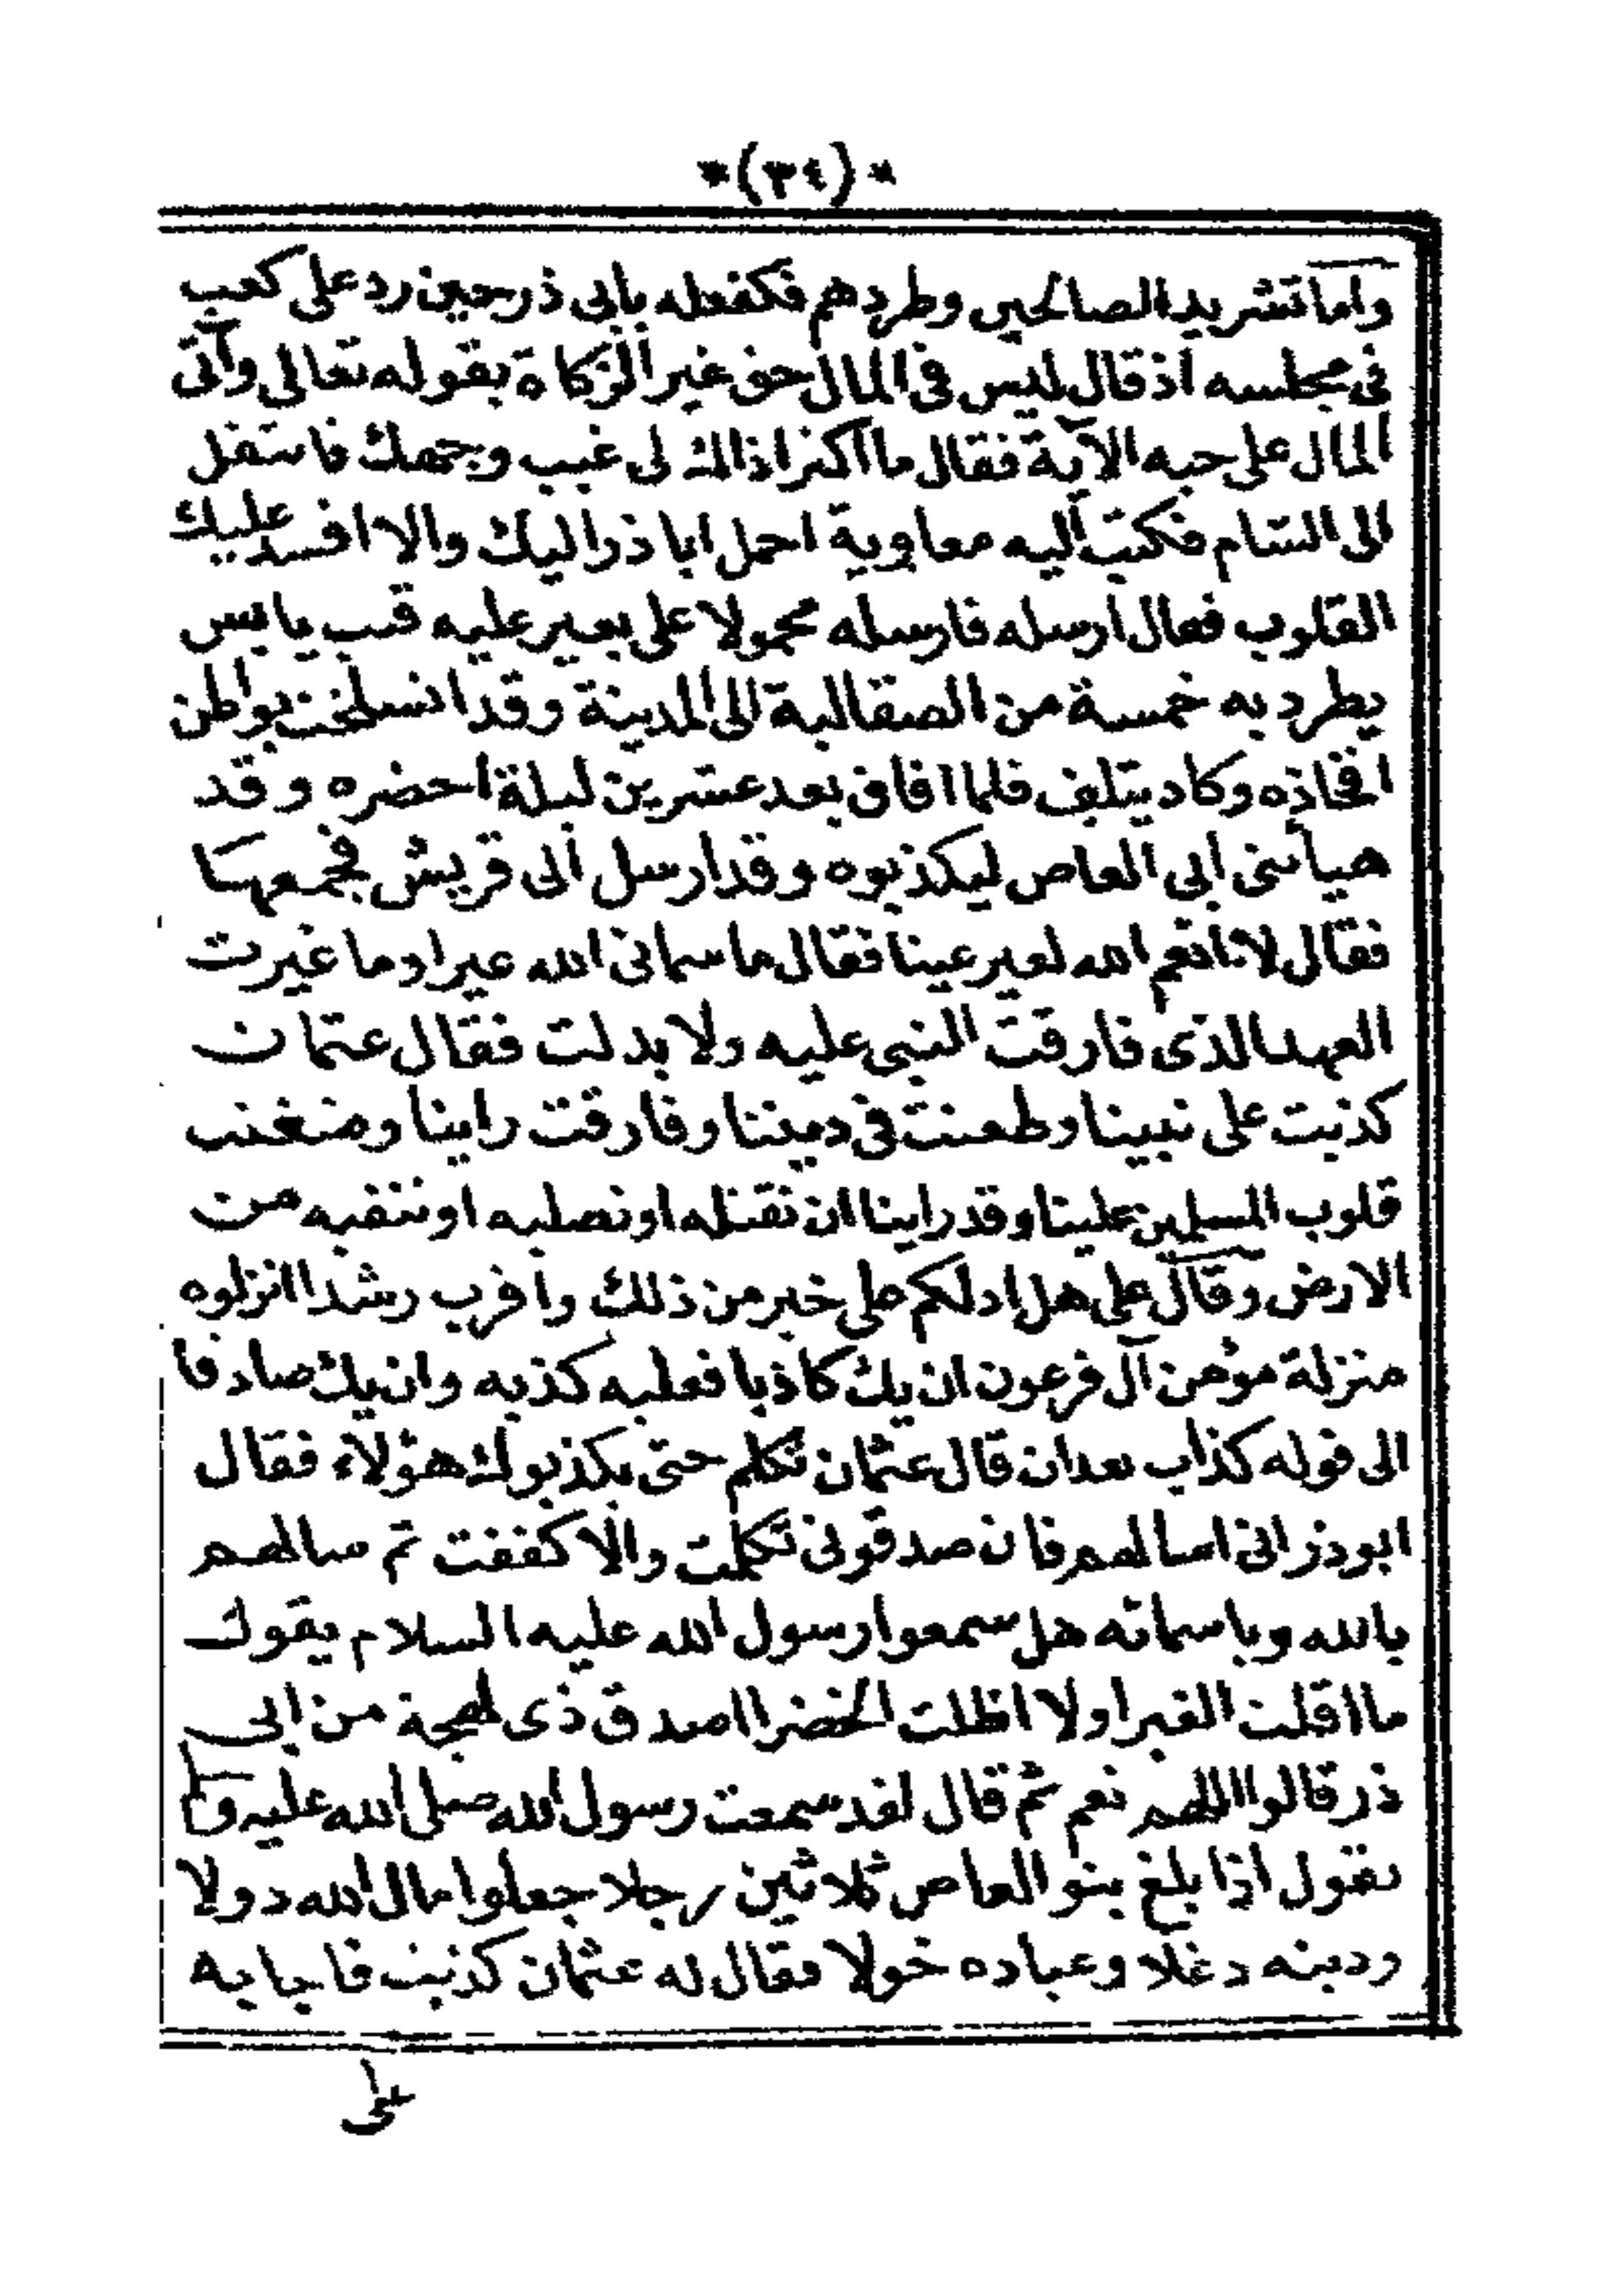 *(٣٤)*
واما تشريد الصالحين وطردهم فكفعله بابى ذر حين رد على كعب
فى مجلسه اذ قال ليس فى المال حق غير الزكاة بقوله تعالى وآتى
المال على حبه الآية فقال ما اكثر اذاك لى غيب وجهك فانتقل
الى الشام فكتب اليه معاوية احمل ابا ذر اليك والا افسد عليك
القلوب فقال ارسله فارسله محمولا على بعير عليه قتب يابس
يطرد به خمسة من الصقالبة الى المدينة وقد انسلخت بواطن
افخاذه وكاد يتلف فلما افاق بعد عشرين ليلة احضره وقد
هيأ بنى ابى العاص ليكذبوه وقد ارسل الى قريش فجمعها
فقال لا انعم الله لعير عينا فقال ما سمانى الله عيرا وما غيرت
العهد الذى فارقت النبى عليه ولا بدلت فقال عثمان
كذبت على نبينا وطعنت فى ديننا وفارقت راينا وضغنت
قلوب المسلمين علينا وقد راينا ان نقتله او نصلبه او ننفيه من
الارض وقال على هل ادلكم على خير من ذلك واقرب رشدا انزلوه
منزلة مؤمن آل فرعون ان يك كاذبا فعليه كذبه وان يك صادقا
الى قوله كذاب بعد ان قال عثمان تكلم حتى يكذبوك هؤلاء فقال
ابو ذر انى اسالهم فان صدقونى تكلمت والا كففت ثم سالهم
بالله وباسمائه هل سمعوا رسول الله عليه السلام يقول
ما اقلت الغبرا ولا اظلت الخضرا اصدق ذى لهجة من ابى
ذر قالوا اللهم نعم ثم قال لقد سمعت رسول الله صلى الله عليه و
يقول اذا بلغ بنو العاص ثلاثين رجلا جعلوا مال الله دولا
ودينه دغلا وعباده خولا فقال له عثمان كذبت فاجابه
على